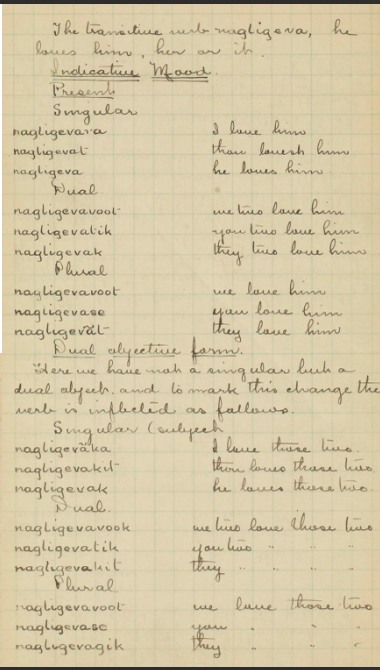 The transitive verb nagligeva, he
loves him, her or it.
Indicative Mood.
Present
Singular
nagligevara I love him
nagligevat thou lovest him
nagligeva he loves him
Dual
nagligevavoot we two love him
nagligevatik you two love him
nagligevak they two love him
Plural
nagligevavoot we love him
nagligevase you love him
nagligevät they love him
Dual objective form.
Here we have not a singular but a
dual object. and to mark this change the
verb is inflected as follows.
Singular (subject
nagligeväka I love those two.
nagligevakit thou loves those two
nagligevak he loves those two.
Dual.
nagligevavook we two love those two
nagligevatik you two " " "
nagligevakit they " " " "
Plural
nagligevavoot we love those two
nagligevase you " " "
nagligevagik they " " "